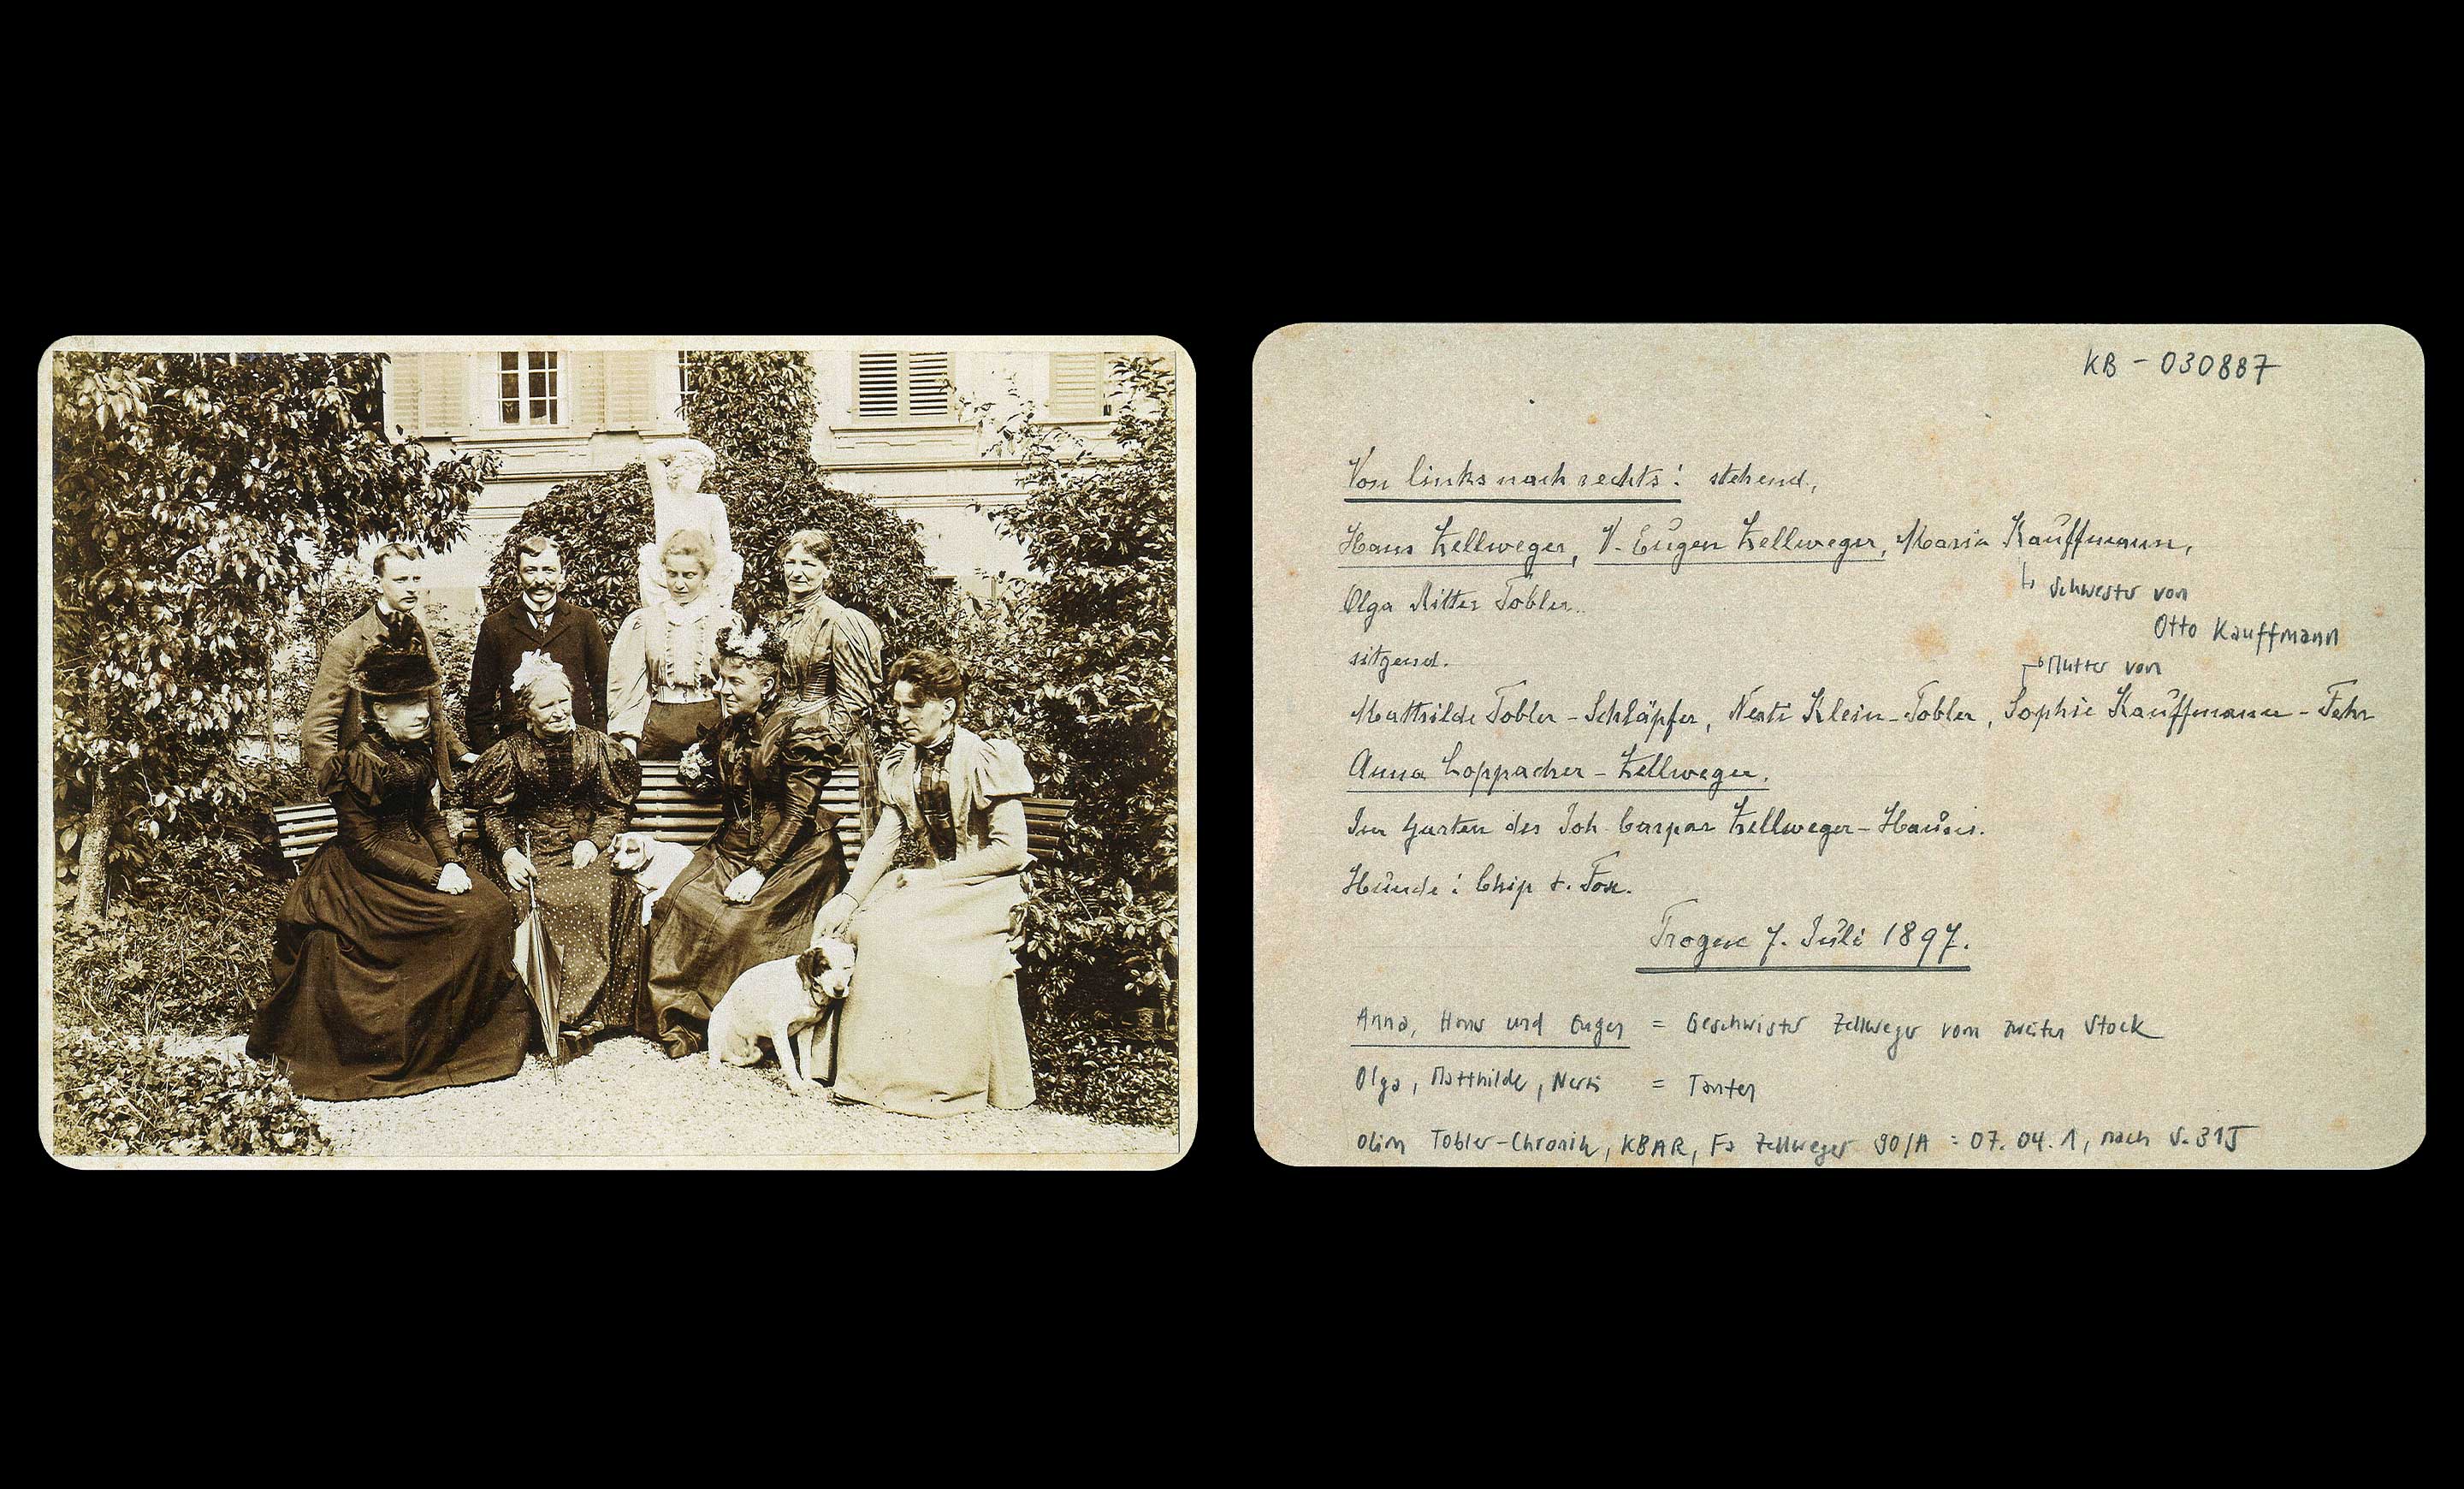 KB - 030887
Von links nach rechts: stehend,
Hans Zellweger, V. Eugen Zellweger, Maria Kauffmann,
↳ Schwester von
Otto Kauffmann
Olga Ritter Tobler.
sitzend.
Mutter von
Mathilde Tobler-Schläpfer, Klein-Tobler, Sophie Kauffmann-Fehr
Anna Loppacher-Zellweger.
Im Garten des Joh. Caspar Zellweger-Hauses.
Hunde: Chip &. Fox.
Trogen 7. Juli 1897.
Anna, Hans und Eugen = Geschwister Zellweger vom zweiten Stock
Olga, Matthilde, = Tanten
olim Tobler-Chronik, KBAR, Fa Zellweger 90/A : 07. 04. 1, nach S.